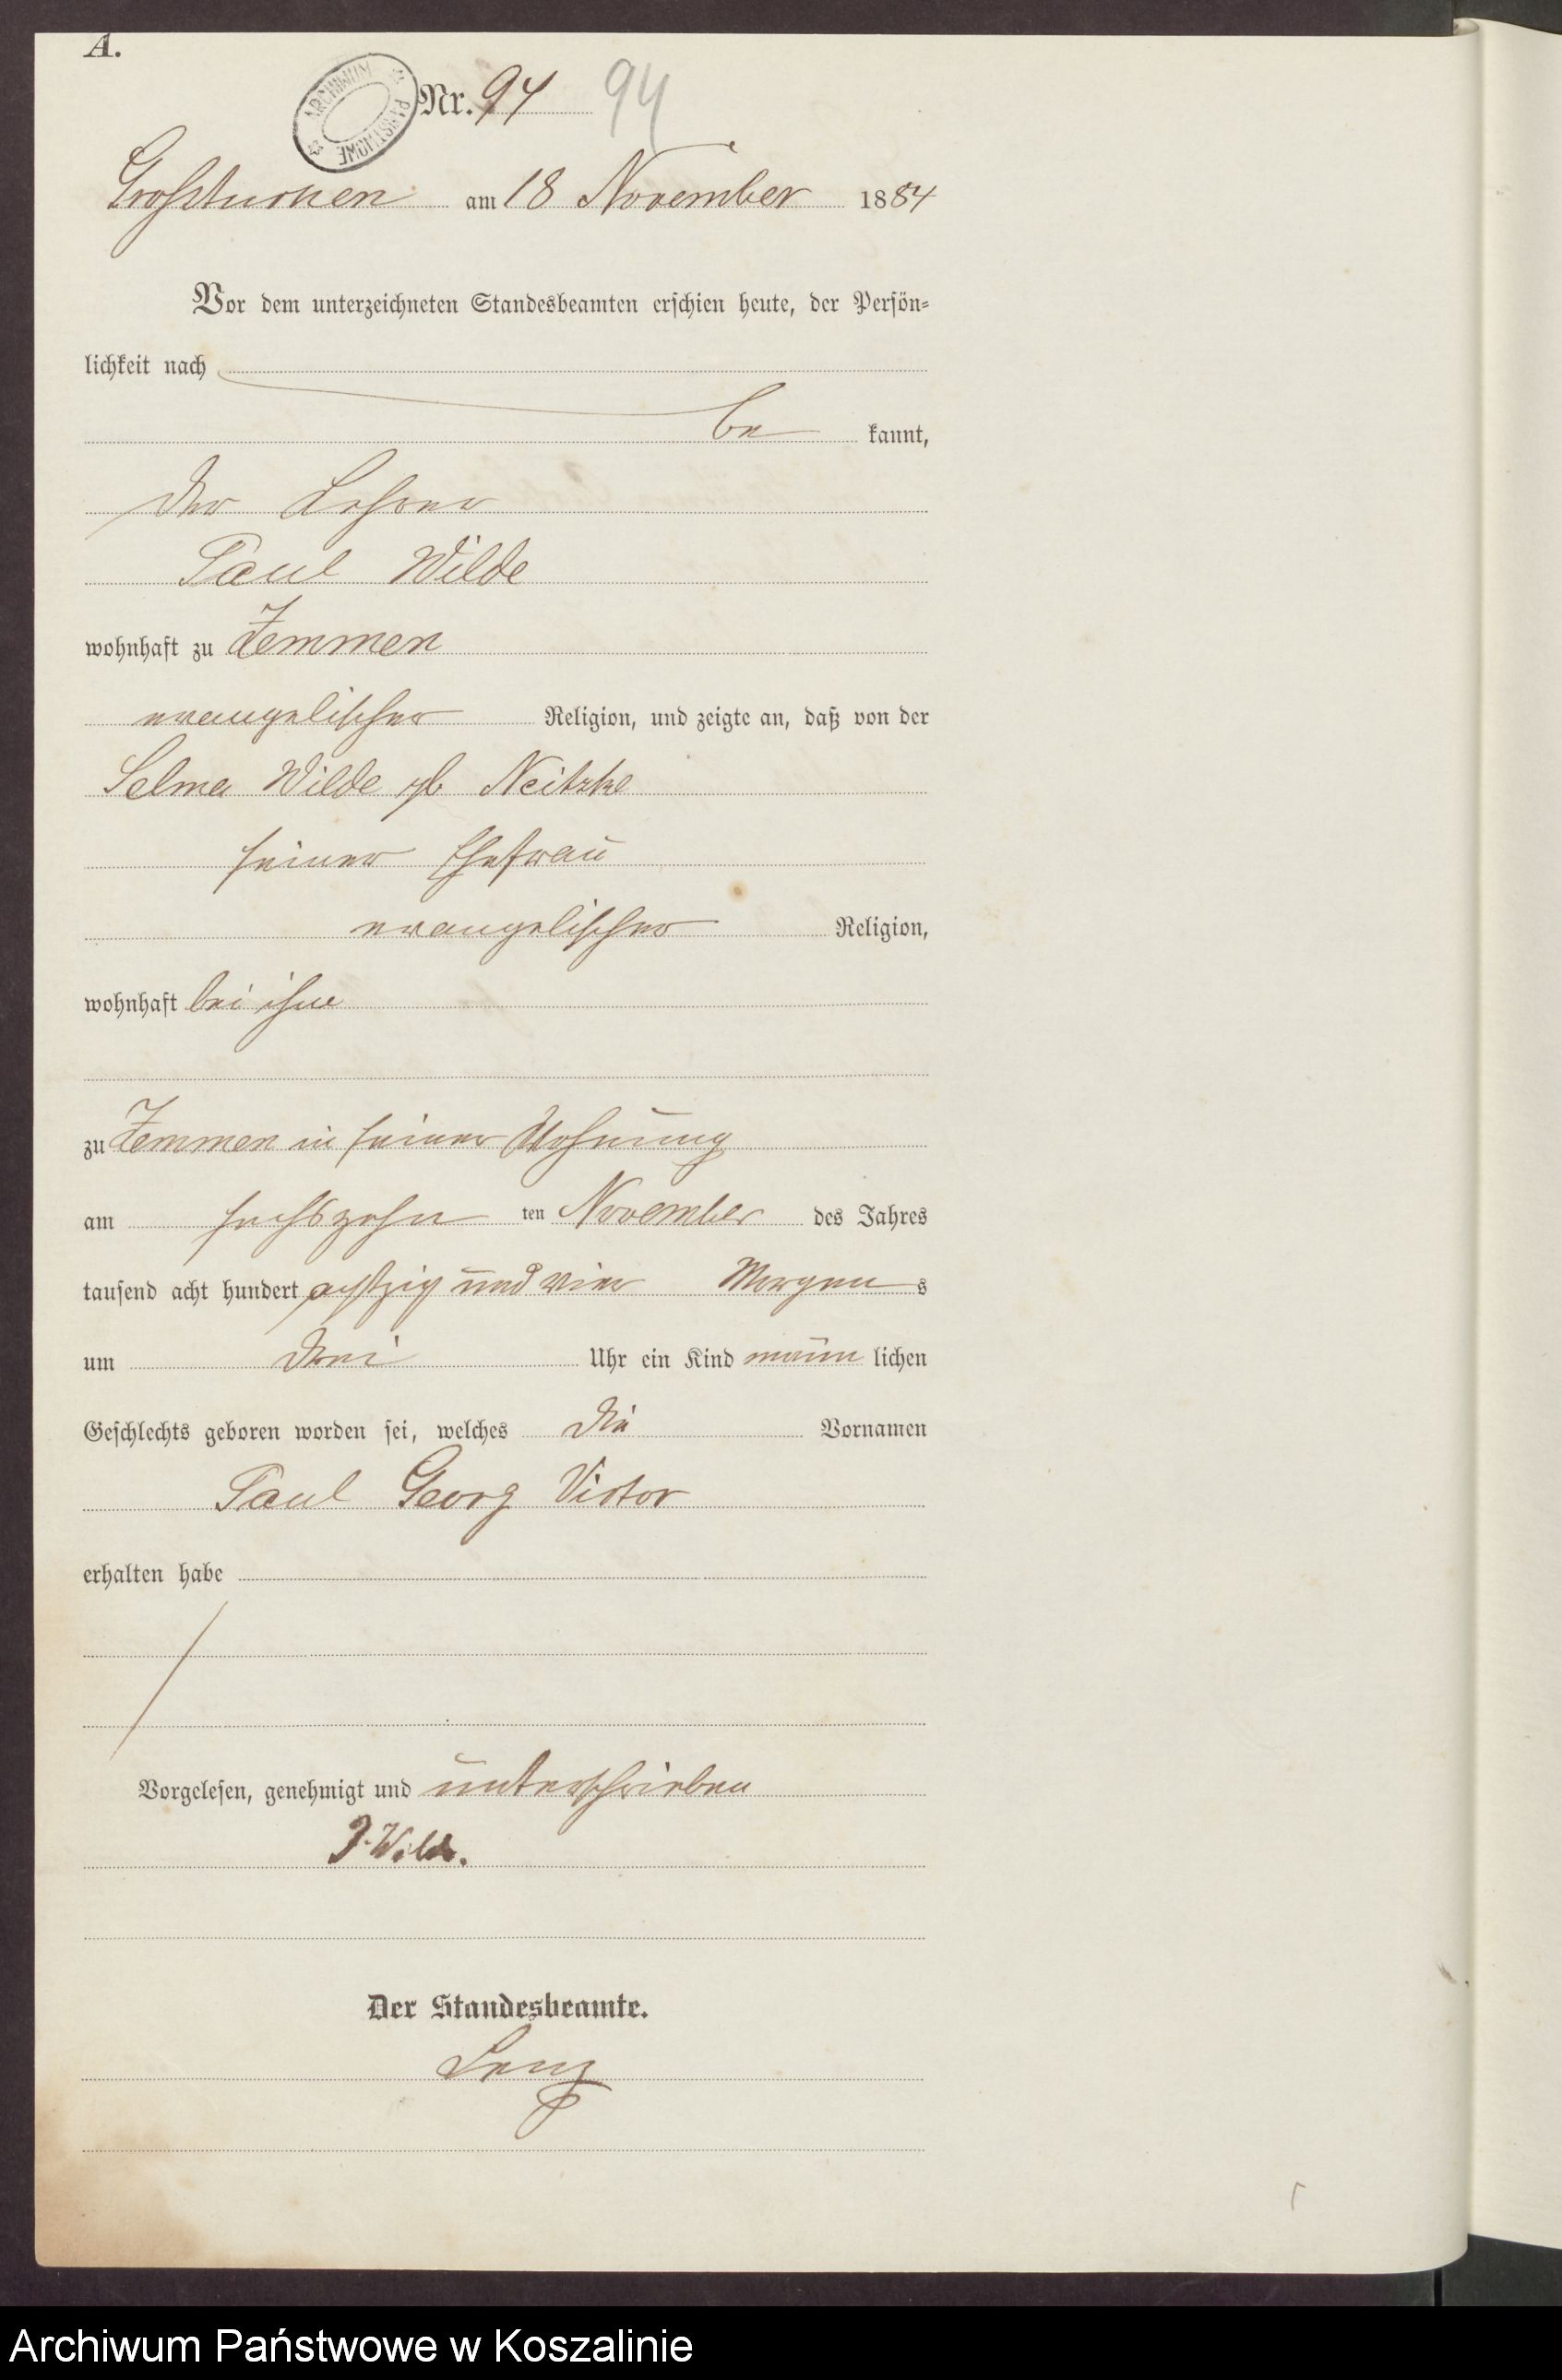 A.
ARCHIWUM PAŃSTWOWE
Nr. 94 94
Großtuchen am 18 November 1884
Vor dem unterzeichneten Standesbeamten erschien heute, der Persön-
lichkeit nach
be kannt,
der Lehrer
Paul Wilde
wohnhaft zu Zemmen
evangelischer Religion, und zeigte an, daß von der
Selma Wilde gb Neitzke
seiner Ehefrau
evangelischer Religion,
wohnhaft bei ihm
zu Zemmen in seiner Wohnung
am sechszehn ten November des Jahres
tausend acht hundert achtzig und vier Morgen s
um drei Uhr ein Kind männ lichen
Geschlechts geboren worden sei, welches die Vornamen
Paul Georg Victor
erhalten habe
Vorgelesen, genehmigt und unterschrieben
P. Wilde.
Der Standesbeamte.
Lenz
Archiwum Państwowe w Koszalinie